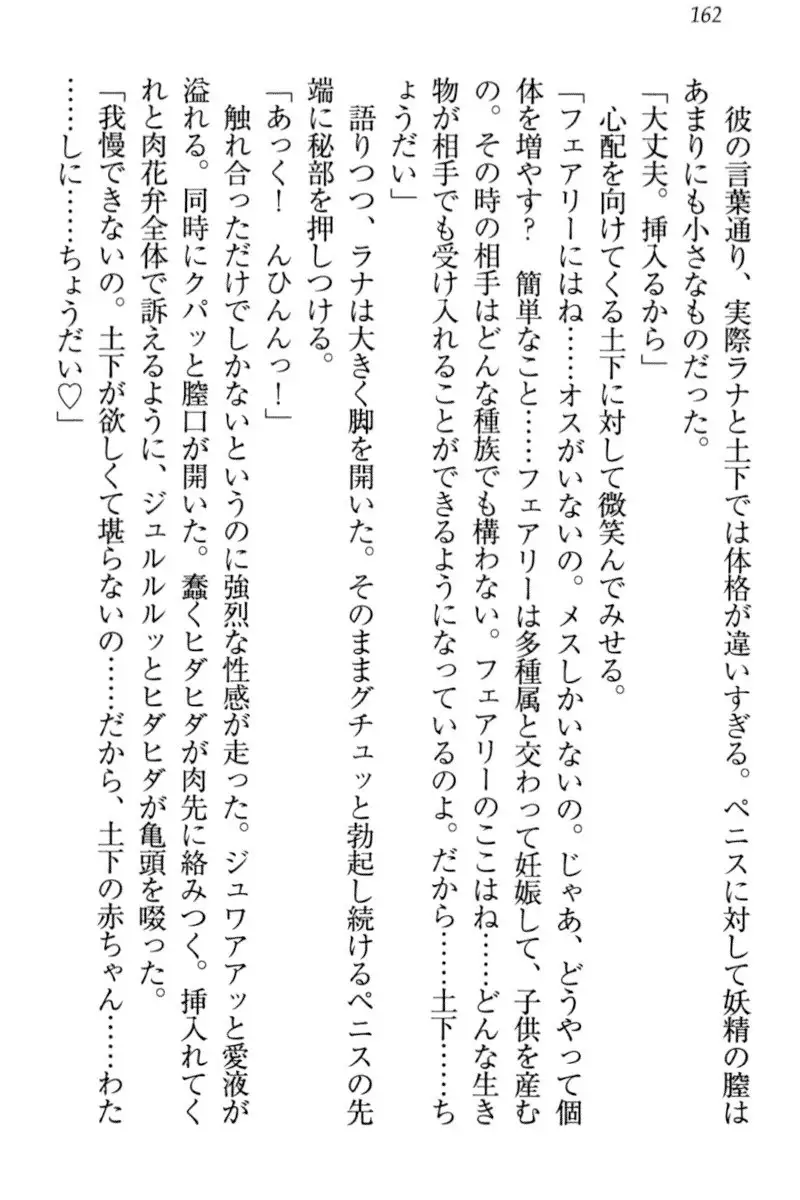 162
彼の言葉通り、実際ラナと土下では体格が違いすぎる。ペニスに対して妖精の膣は
あまりにも小さなものだった。
「大丈夫。挿入るから」
心配を向けてくる土下に対して微笑んでみせる。
「フェアリーにはね……オスがいないの。メスしかいないの。じゃあ、どうやって個
体を増やす？　簡単なこと……フェアリーは多種属と交わって妊娠して、子供を産む
の。その時の相手はどんな種族でも構わない。フェアリーのここはね……どんな生き
物が相手でも受け入れることができるようになっているのよ。だから……土下……ち
ょうだい」
語りつつ、ラナは大きく脚を開いた。そのままグチュッと勃起し続けるペニスの先
端に秘部を押しつける。
「あっく！　んひんんっ！」
触れ合っただけでしかないというのに強烈な性感が走った。ジュワアアッと愛液が
溢れる。同時にクパッと膣口が開いた。蠢くヒダヒダが肉先に絡みつく。挿入れてく
れと肉花弁全体で訴えるように、ジュルルルッとヒダヒダが亀頭を啜った。
「我慢できないの。土下が欲しくて堪らないの……だから、土下の赤ちゃん……わた
……しに……ちょうだい♡」